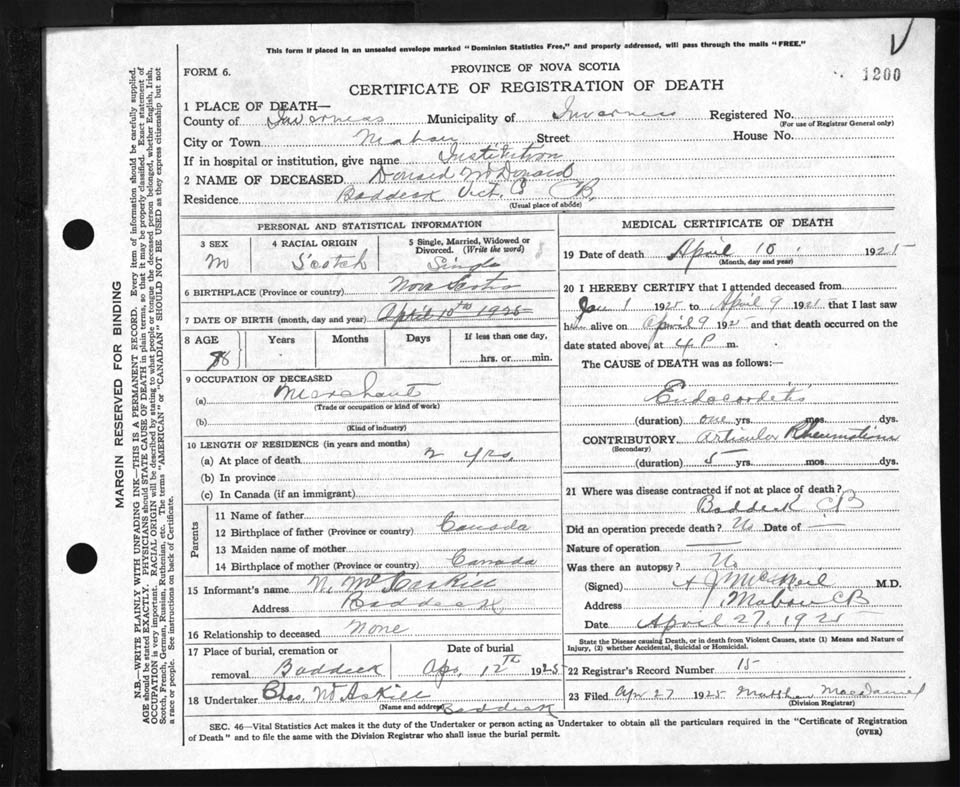 This form if placed in an unsealed envelope marked "Dominion Statistics Free," and properly addressed, will pass through the mails "FREE."
FORM 6.
PROVINCE OF NOVA SCOTIA
1200
CERTIFICATE OF REGISTRATION OF DEATH
1 PLACE OF DEATH—
County of Inverness Municipality of Inverness Registered No.
(For use of Registrar General only)
City or Town Mabou Street House No.
If in hospital or institution, give name Institution
2 NAME OF DECEASED Donald McDonald
Residence Baddeck Vict. Co CB.
(Usual place of abode)
PERSONAL AND STATISTICAL INFORMATION
3 SEX
M
4 RACIAL ORIGIN
Scotch
5 Single, Married, Widowed or Divorced. (Write the word)
Single
6 BIRTHPLACE (Province or country) Nova Scotia
7 DATE OF BIRTH (month, day and year) April 10th 1925
8 AGE
78
Years
Months
Days
If less than one day,
hrs. or min.
9 OCCUPATION OF DECEASED
(a) Merchant
(Trade or occupation or kind of work)
(b)
(Kind of industry)
10 LENGTH OF RESIDENCE (in years and months)
(a) At place of death 2 yrs.
(b) In province
(c) In Canada (if an immigrant)
Parents
11 Name of father
12 Birthplace of father (Province or country) Canada
13 Maiden name of mother
14 Birthplace of mother (Province or country) Canada
15 Informant's name N. McAskill
Address Baddeck
16 Relationship to deceased None
17 Place of burial, cremation or removal Baddeck
Date of burial
Apr. 12th 1925
18 Undertaker Chas. McAskill
(Name and address) Baddeck
MEDICAL CERTIFICATE OF DEATH
19 Date of death April 10 1925
(Month, day and year)
20 I HEREBY CERTIFY that I attended deceased from
Jan 1 1925 to April 9 1921 that I last saw
him alive on April 9 1925 and that death occurred on
date stated above, at 4 P m.
The CAUSE of DEATH was as follows:—
Endocarditis
(duration) one yrs. mos. dys.
CONTRIBUTORY Articular Rheumatism
(Secondary)
(duration) 5 yrs. mos. dys.
21 Where was disease contracted if not at place of death?
Baddeck CB
Did an operation precede death? No Date of —
Nature of operation —
Was there an autopsy? No
(Signed) A J McNeil M.D.
Address Mabou CB
Date April 27, 1925
State the Disease causing Death, or in death from Violent Causes, state (1) Means and Nature of Injury, (2) whether Accidental, Suicidal or Homicidal.
22 Registrar's Record Number 15
23 Filed Apr 27 1925 Matthew Macdaniel
(Division Registrar)
SEC. 46—Vital Statistics Act makes it the duty of the Undertaker or person acting as Undertaker to obtain all the particulars required in the "Certificate of Registration
of Death" and to file the same with the Division Registrar who shall issue the burial permit.
(OVER)
MARGIN RESERVED FOR BINDING
N.B.—WRITE PLAINLY WITH UNFADING INK—THIS IS A PERMANENT RECORD. Every item of information should be carefully supplied.
AGE should be stated EXACTLY. PHYSICIANS should STATE CAUSE OF DEATH in plain terms, so that it may be properly classified. Exact statement of
OCCUPATION is very important. RACIAL ORIGIN will be described by stating to what people or tongue the deceased person belonged, whether English, Irish,
Scotch, French, German, Russian, Ruthenian, etc. The terms "AMERICAN" or "CANADIAN" SHOULD NOT BE USED as they express citizenship but not
a race or people. See instructions on back of Certificate.